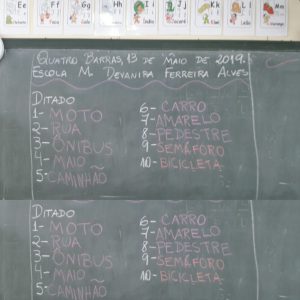 Ee
Ff
Gg
Hh
Ii
Jj
Kk
Ll
QUATRO BARRAS, 13 DE MAIO DE 2019.
ESCOLA M. DEVANIRA FERREIRA ALVES
DITADO
1- MOTO
2- RUA
3- ÔNIBUS
4- MAIO
5- CAMINHÃO
6- CARRO
7- AMARELO
8- PEDESTRE
9- SEMÁFORO
10- BICICLETA
DITADO
1- MOTO
2- RUA
3- ÔNIBUS
4- MAIO
5- CAMINHÃO
6- CARRO
7- AMARELO
8- PEDESTRE
9- SEMÁFORO
10- BICICLETA